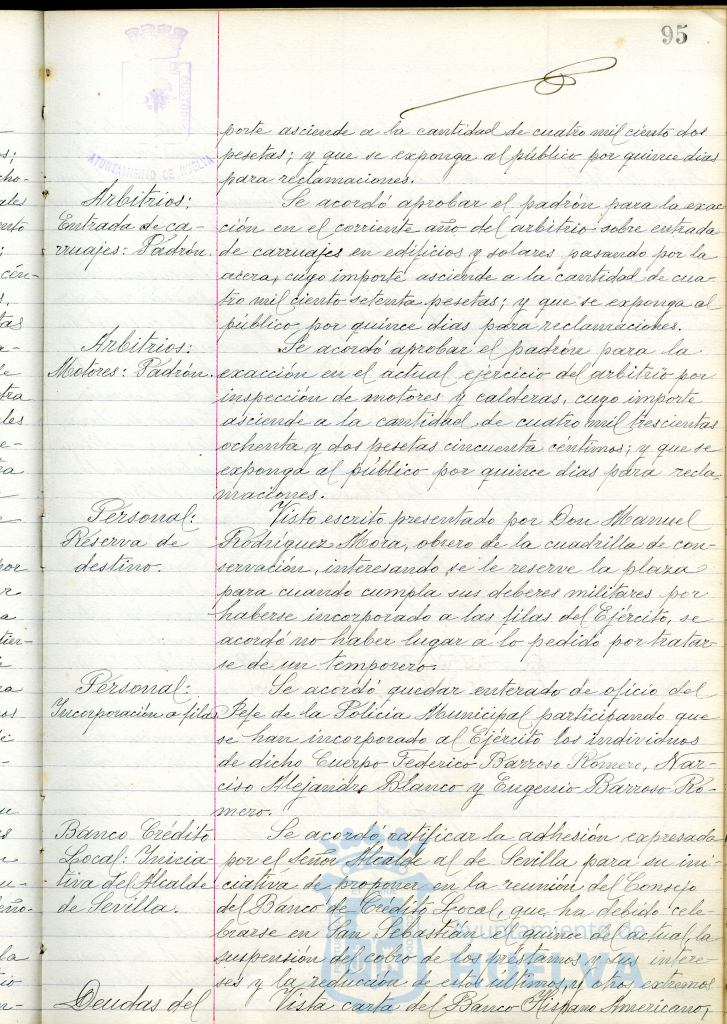 95
AYUNTAMIENTO DE HUELVA
porte asciende a la cantidad de cuatro mil ciento dos
pesetas; y que se exponga al público por quince dias
para reclamaciones.
Arbitrios:
Entrada de ca-
rruajes: Padrón.
Se acordó aprobar el padrón para la exac-
ción en el corriente año del arbitrio sobre entrada
de carruajes en edificios y solares pasando por la
acera, cuyo importe asciende a la cantidad de cua-
tro mil ciento setenta pesetas; y que se exponga al
público por quince dias para reclamaciones.
Arbitrios:
Motores: Padrón.
Se acordó aprobar el padrón para la
exacción en el actual ejercicio del arbitrio por
inspección de motores y calderas, cuyo importe
asciende a la cantidad de cuatro mil trescientas
ochenta y dos pesetas cincuenta céntimos; y que se
exponga al público por quince dias para recla-
maciones.
Personal:
Reserva de
destino.
Visto escrito presentado por Don Manuel
Rodriguez Mora, obrero de la cuadrilla de con-
servación, interesando se le reserve la plaza
para cuando cumpla sus deberes militares por
haberse incorporado a las filas del Ejército, se
acordó no haber lugar a lo pedido por tratar-
se de un temporero.
Personal:
Incorporación a filas
Se acordó quedar enterado de oficio del
Jefe de la Policia Municipal participando que
se han incorporado al Ejército los individuos
de dicho Cuerpo Federico Barroso Romero, Nar-
ciso Alejandre Blanco y Eugenio Barroso Ro-
mero.
Banco Crédito
Local: Inicia-
tiva del Alcalde
de Sevilla.
Se acordó ratificar la adhesión expresada
por el Señor Alcalde al de Sevilla para su ini-
ciativa de proponer en la reunión del Consejo
del Banco de Crédito Local, que ha debido cele-
brarse en San Sebastián el quince del actual, la
suspensión del cobro de los préstamos y sus intere-
ses y la reducción de estos ultimos, y otros extremos
Deudas del
Vista carta del Banco Hispano Americano,
Ayuntamiento de
HUELVA